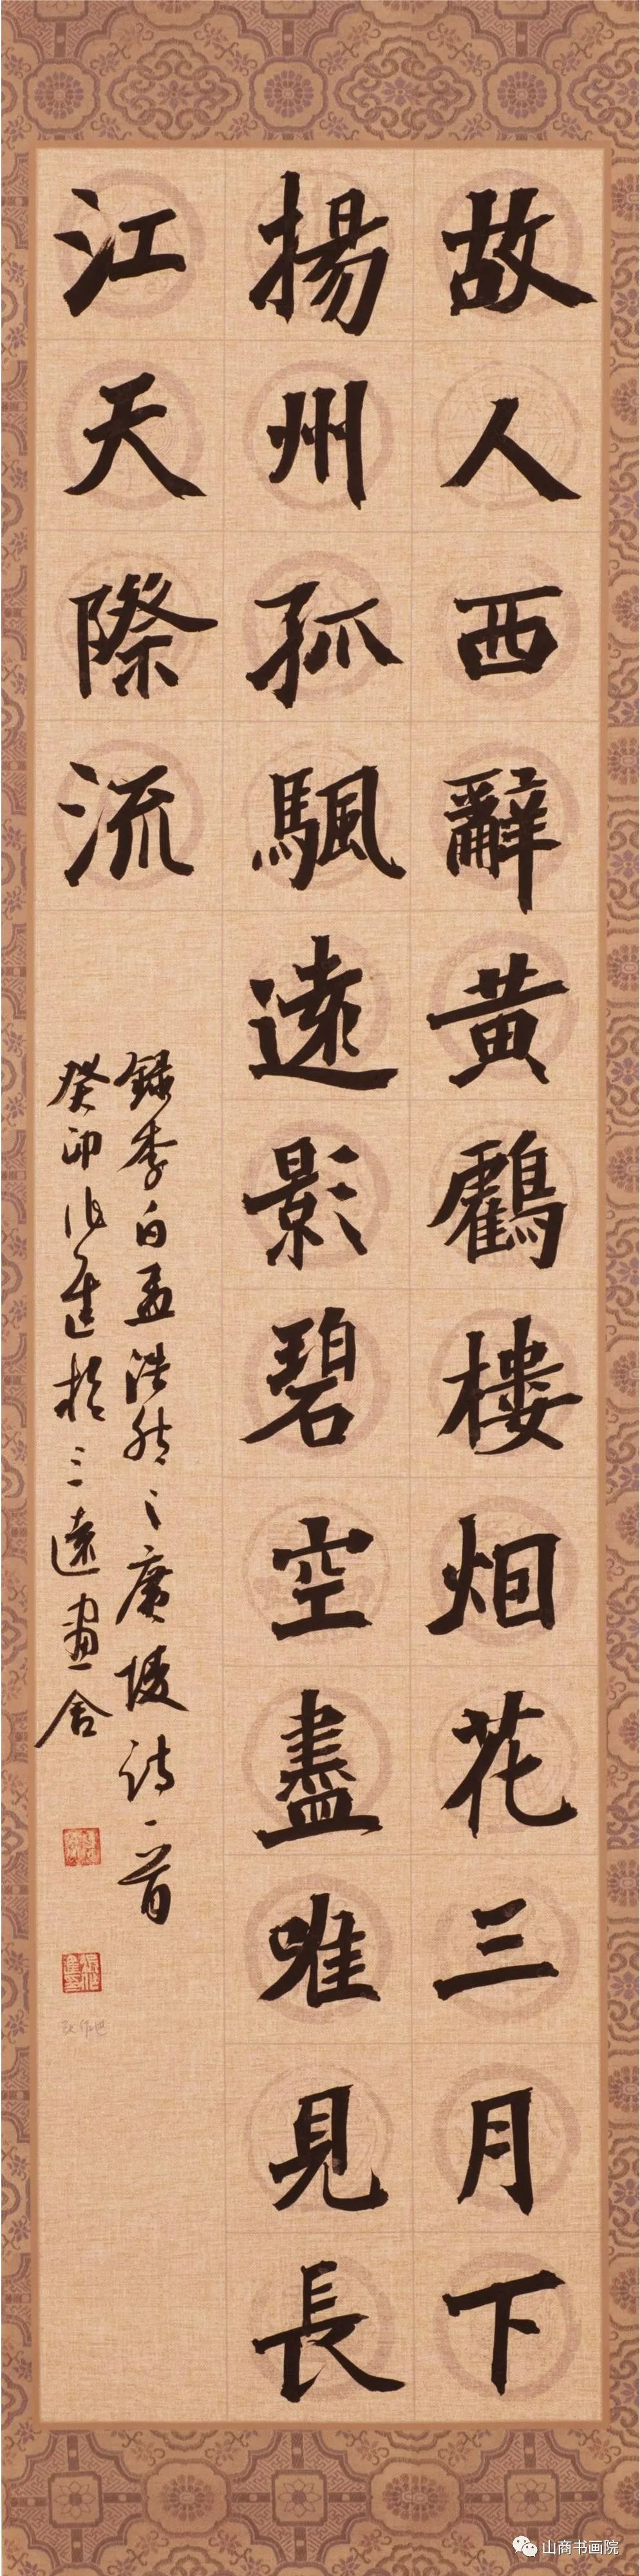 故人西辭黃鸖樓烟花三月下
揚州孤颿遠影碧空盡唯見長
江天際流
錄李白孟浩然之廣陵詩一首
癸卯作進於三遠畫舍
山商书画院